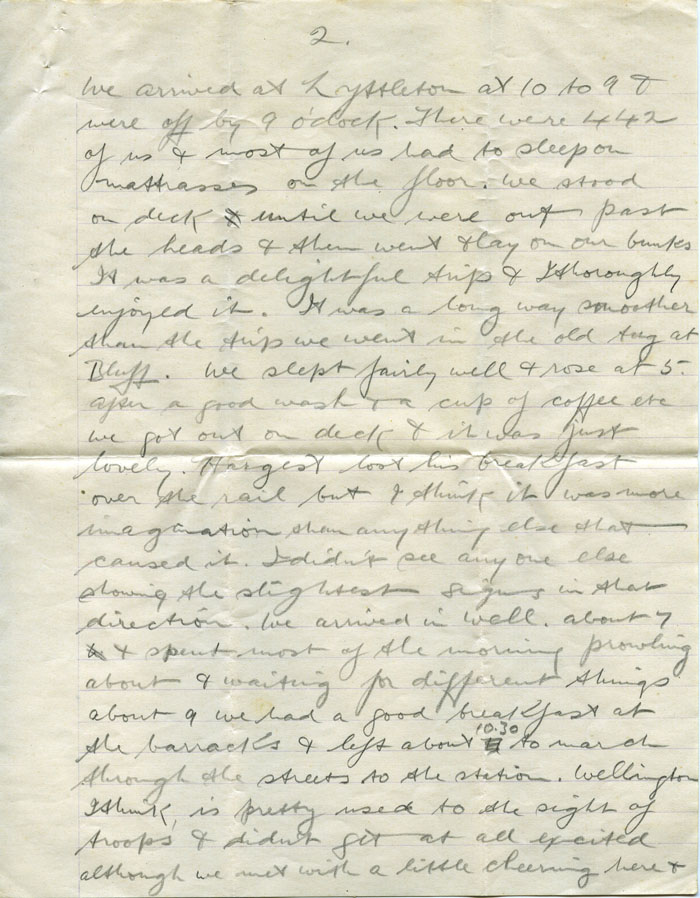 2.
We arrived at Lyttleton at 10 to 9 &
were off by 9 o'clock. There were 442
of us & most of us had to sleep on
mattrasses on the floor. We stood
on deck until we were out past
the heads & then went & lay on our bunks
It was a delightful trip & I thoroughly
enjoyed it. It was a long way smoother
than the trip we went in the old tug at
Bluff. We slept fairly well & rose at 5.
after a good wash & a cup of coffee etc
we got out on deck & it was just
lovely. Hargest lost his breakfast
over the rail but I think it was more
imagination than anything else that
caused it. I didn't see anyone else
showing the slightest signs in that
direction. We arrived in Well. about 7
& spent most of the morning prowling
about & waiting for different things
about 9 we had a good breakfast at
the barracks & left about 10.30 to march
through the streets to the station. Wellington
I think, is pretty used to the sight of
troops & didn't get at all excited
although we met with a little cheering here &